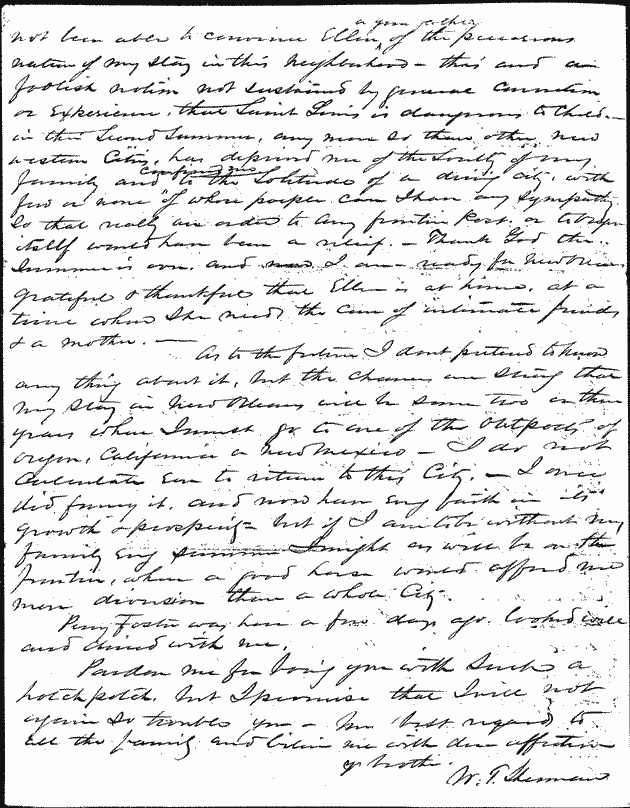 or your father
not been able to convince Ellen, of the precarious
nature of my stay in this neighborhood - this and a
foolish notion not sustained by general
or Experience, that Saint Louis is dangerous to child
in their Second Summer, any more so than other new
western Cities, has deprived me of the Society of my
family and confined me to the Solitude of a dining city, with
few or none of whose people can I have any Sympathy
So that really an order to any frontier Post, or to
itself would have been a relief. - Thank God the
Summer is over, and now I am ready for New Orleans
grateful & thankful that Ellen is at home, at a
time when She needs the care of intimate friends
& a mother. -
As to the future I dont pretend to know
any thing about it, but the chances are strong that
my stay in New Orleans will be some two or three
years when I must go to one of the Outposts of
Oregon, California or New Mexico - I do not
Calculate Ever to return to this City. - I once
did fancy it, and now have Every faith in its
growth & prosperity - but if I am to be without my
family Every summer I might as well be on the
frontier, where a good horse would afford me
more diversion than a whole City.
Perry Foster was here a few days ago. looked well
and dined with me.
Pardon me for boring you with Such a
hotchpotch, but I promise that I will not
again So trouble you - my best regards to
all the family and believe me with due affection
yr brother.
W. T. Sherman